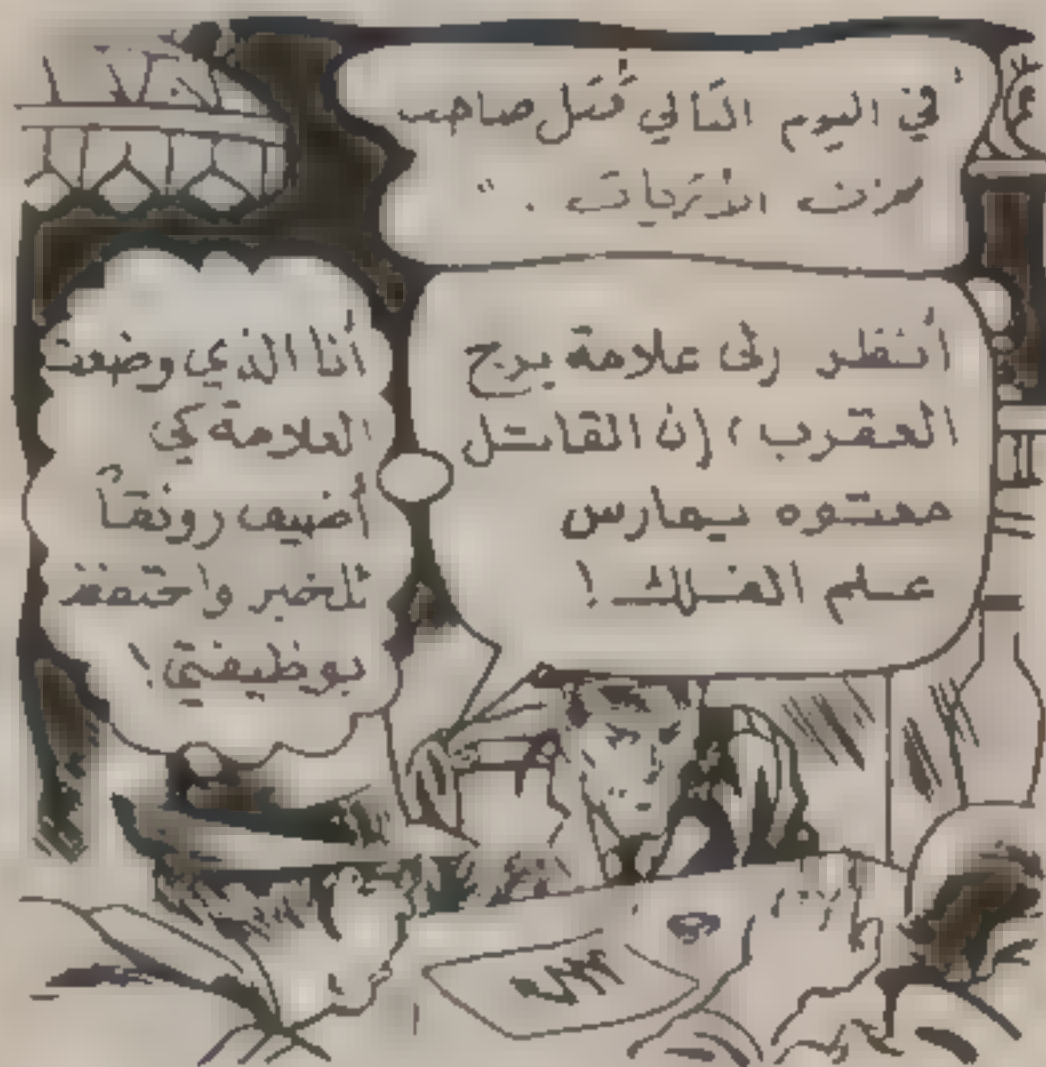 في اليوم التالي قُتل صاحب
مخزن الأثريات . "
أنظر إلى علامة برج
العقرب ، إن القاتل
معتوه يمارس
علم الفلك !
أنا الذي وضعت
العلامة كي
أضيف رونقاً
للخبر واحتفظ
بوظيفتي !